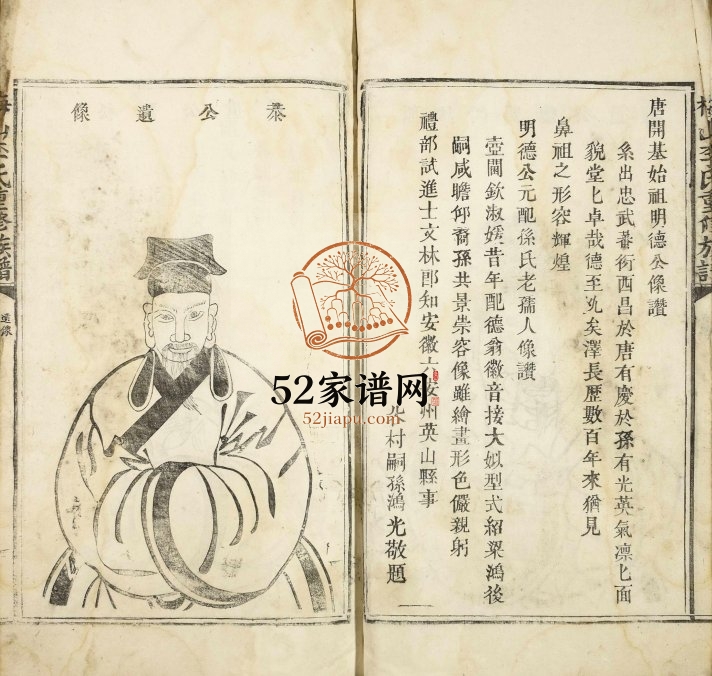 梅山李氏重修族譜
唐開基始祖明德公像讚
系出忠武蕃衍西昌於唐有慶於孫有光英氣凛匕面
貌堂匕卓哉德至矣澤長歷數百年來猶見
鼻祖之形容輝煌
明德公元配孫氏老孺人像讚
壺閫欽淑媛昔年配德翁徽音接大姒型式紹梁鴻後
嗣咸瞻仰裔孫共景崇容像雖繪畫形色儼親躬
禮部試進士文林郎知安徽六安州英山縣事
村嗣孫鴻光敬題
公遺像
李氏重修族譜
遺像
52家谱网
52jiapu.com